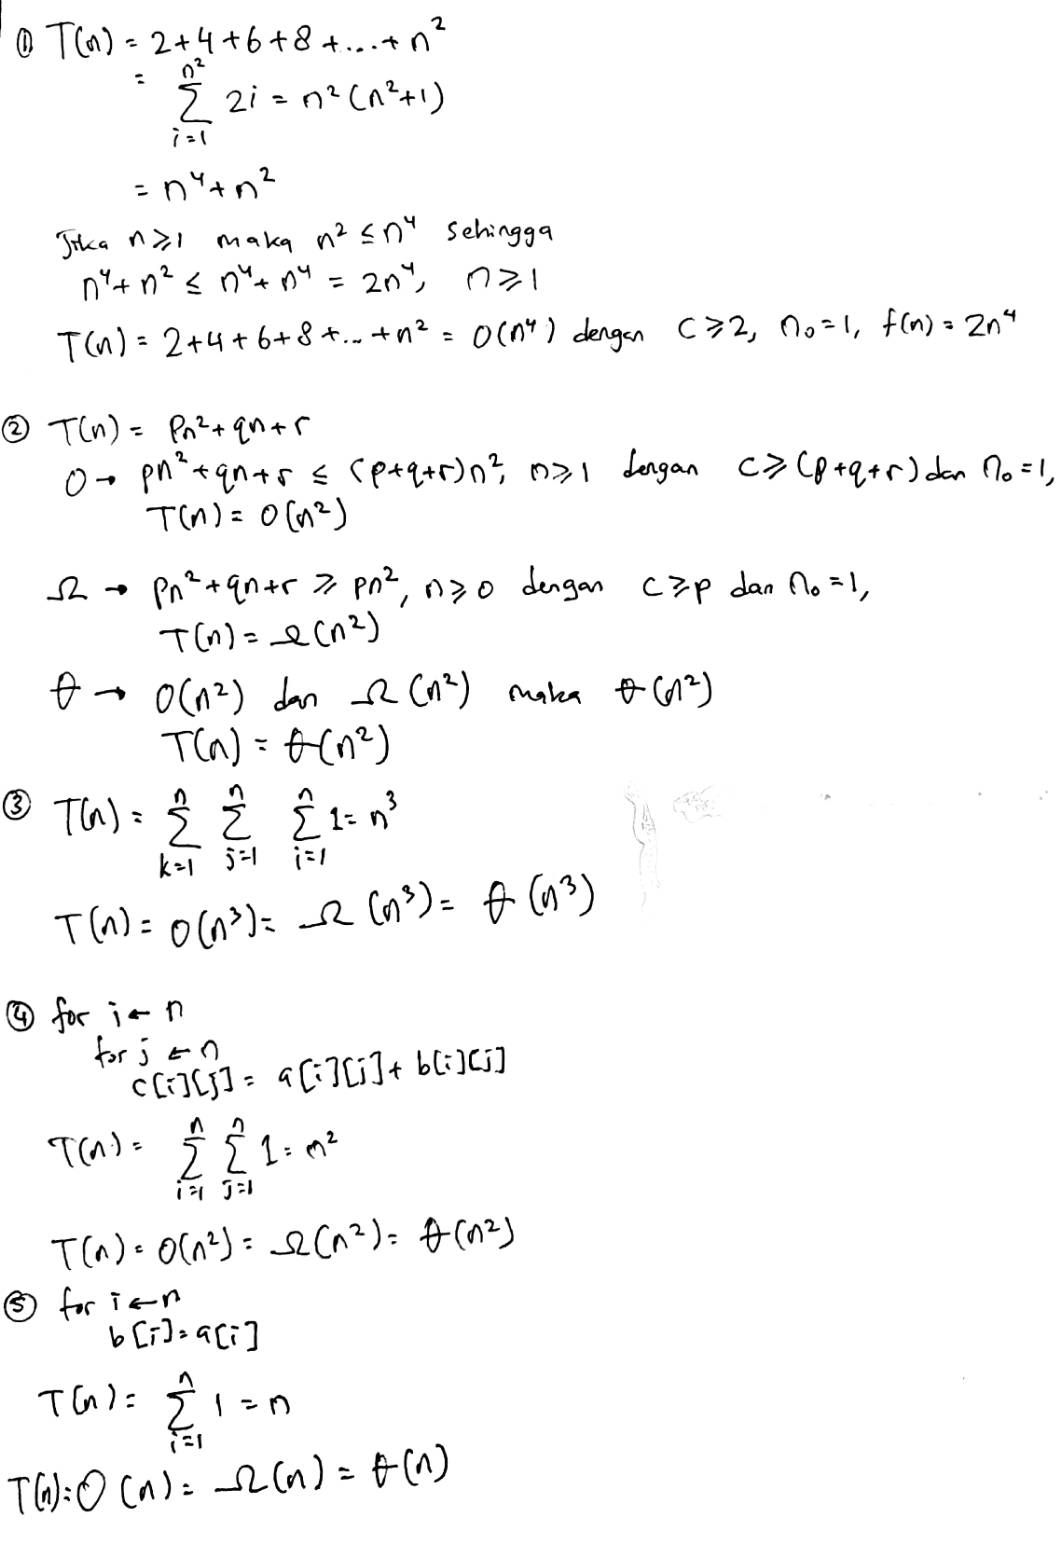 ① T(n) = 2+4+6+8+...+n²
= n² Σ i=1 2i = n²(n²+1)
= n⁴+n²
Jika n≥1 maka n² ≤ n⁴ sehingga
n⁴+n² ≤ n⁴+n⁴ = 2n⁴, n≥1
T(n) = 2+4+6+8+...+n² = O(n⁴) dengan C≥2, n₀=1, f(n)=2n⁴
② T(n) = Pn²+qn+r
O → pn²+qn+r ≤ (p+q+r)n², n≥1 dengan c≥(p+q+r) dan n₀=1,
T(n) = O(n²)
Ω → pn²+qn+r ≥ pn², n≥0 dengan c≥p dan n₀=1,
T(n) = Ω(n²)
θ → O(n²) dan Ω(n²) maka θ(n²)
T(n) = θ(n²)
③ T(n) = n Σ k=1 n Σ j=1 n Σ i=1 1 = n³
T(n) = O(n³) = Ω(n³) = θ(n³)
④ for i ← n
for j ← n
c[i][j] = a[i][j] + b[i][j]
T(n) = n Σ i=1 n Σ j=1 1 = n²
T(n) = O(n²) = Ω(n²) = θ(n²)
⑤ for i ← n
b[i] = a[i]
T(n) = n Σ i=1 1 = n
T(n) = O(n) = Ω(n) = θ(n)